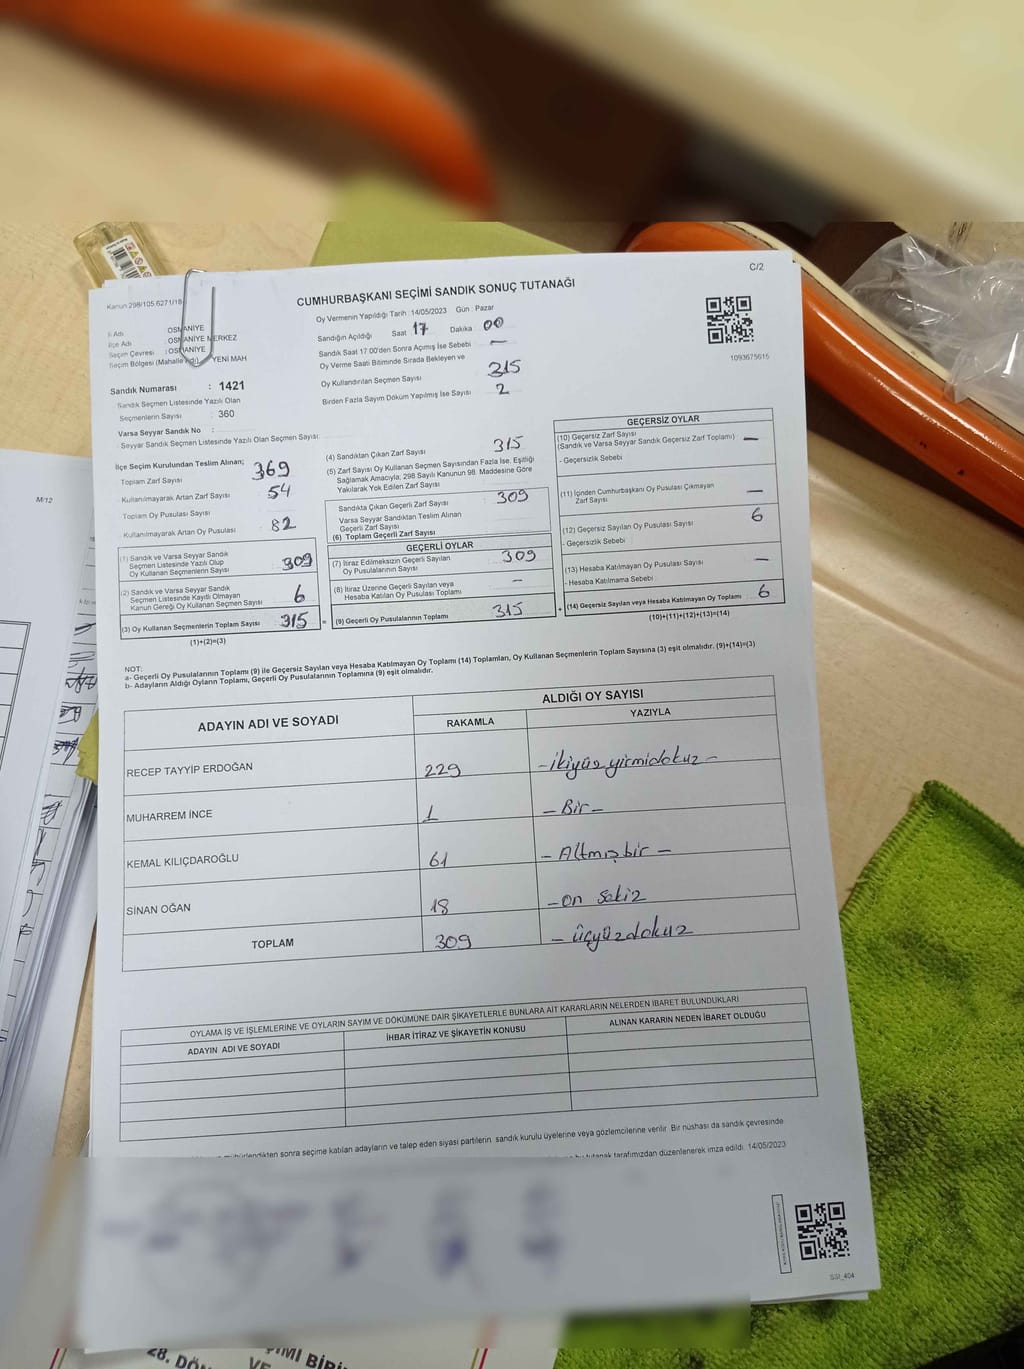 C/2
Kanun 298/105 6271/18
CUMHURBAŞKANI SEÇİMİ SANDIK SONUÇ TUTANAĞI
Oy Vermenin Yapıldığı Tarih : 14/05/2023 Gün : Pazar
İl Adı OSMANİYE
İlçe Adı OSMANİYE MERKEZ
Seçim Çevresi : OSMANİYE
Seçim Bölgesi (Mahalle Adı) YENİ MAH
Sandığın Açıldığı Saat 17 Dakika 00
Sandık Saat 17.00'den Sonra Açımış İse Sebebi —
Oy Verme Saati Bitiminde Sırada Bekleyen ve
Oy Kullandırılan Seçmen Sayısı 315
Birden Fazla Sayım Döküm Yapılmış İse Sayısı 2
1093675615
Sandık Numarası : 1421
Sandık Seçmen Listesinde Yazılı Olan
Seçmenlerin Sayısı : 360
Varsa Seyyar Sandık No :
Seyyar Sandık Seçmen Listesinde Yazılı Olan Seçmen Sayısı
İlçe Seçim Kurulundan Teslim Alınan;
Toplam Zarf Sayısı 369
Kullanılmayarak Artan Zarf Sayısı 54
Toplam Oy Pusulası Sayısı
Kullanılmayarak Artan Oy Pusulası 82
(1) Sandık ve Varsa Seyyar Sandık
Seçmen Listesinde Yazılı Olup
Oy Kullanan Seçmenlerin Sayısı 309
(2) Sandık ve Varsa Seyyar Sandık
Seçmen Listesinde Kayıtlı Olmayan
Kanun Gereği Oy Kullanan Seçmen Sayısı 6
(3) Oy Kullanan Seçmenlerin Toplam Sayısı 315 =
(1)+(2)=(3)
(4) Sandıktan Çıkan Zarf Sayısı 315
(5) Zarf Sayısı Oy Kullanan Seçmen Sayısından Fazla İse, Eşitliği
Sağlamak Amacıyla; 298 Sayılı Kanunun 98. Maddesine Göre
Yakılarak Yok Edilen Zarf Sayısı
Sandıkta Çıkan Geçerli Zarf Sayısı 309
Varsa Seyyar Sandıktan Teslim Alınan
Geçerli Zarf Sayısı
(6) Toplam Geçerli Zarf Sayısı
GEÇERLİ OYLAR
(7) İtiraz Edilmeksizin Geçerli Sayılan
Oy Pusulalarının Sayısı 309
(8) İtiraz Üzerine Geçerli Sayılan veya
Hesaba Katılan Oy Pusulası Toplamı —
(9) Geçerli Oy Pusulalarının Toplamı 315 +
GEÇERSİZ OYLAR
(10) Geçersiz Zarf Sayısı
(Sandık ve Varsa Seyyar Sandık Geçersiz Zarf Toplamı) —
- Geçersizlik Sebebi
(11) İçinden Cumhurbaşkanı Oy Pusulası Çıkmayan
Zarf Sayısı —
(12) Geçersiz Sayılan Oy Pusulası Sayısı 6
- Geçersizlik Sebebi
(13) Hesaba Katılmayan Oy Pusulası Sayısı —
- Hesaba Katılmama Sebebi
(14) Geçersiz Sayılan veya Hesaba Katılmayan Oy Toplamı 6
(10)+(11)+(12)+(13)=(14)
NOT:
a- Geçerli Oy Pusulalarının Toplamı (9) ile Geçersiz Sayılan veya Hesaba Katılmayan Oy Toplamı (14) Toplamları, Oy Kullanan Seçmenlerin Toplam Sayısına (3) eşit olmalıdır. (9)+(14)=(3)
b- Adayların Aldığı Oyların Toplamı, Geçerli Oy Pusulalarının Toplamına (9) eşit olmalıdır.
ADAYIN ADI VE SOYADI ALDIĞI OY SAYISI
RAKAMLA YAZIYLA
RECEP TAYYİP ERDOĞAN 229 - ikiyüz yirmidokuz -
MUHARREM İNCE 1 - Bir -
KEMAL KILIÇDAROĞLU 61 - Altmışbir -
SİNAN OĞAN 18 - on sekiz
TOPLAM 309 - üçyüzdokuz
OYLAMA İŞ VE İŞLEMLERİNE VE OYLARIN SAYIM VE DÖKÜMÜNE DAİR ŞİKAYETLERLE BUNLARA AİT KARARLARIN NELERDEN İBARET BULUNDUKLARI
ADAYIN ADI VE SOYADI İHBAR İTİRAZ VE ŞİKAYETİN KONUSU ALINAN KARARIN NEDEN İBARET OLDUĞU
mühürlendikten sonra seçime katılan adayların ve talep eden siyasi partilerin sandık kurulu üyelerine veya gözlemcilerine verilir. Bir nüshası da sandık çevresinde
tutanak tarafımızdan düzenlenerek imza edildi. 14/05/2023
SSI_404
M/12
28. DÖN
VE